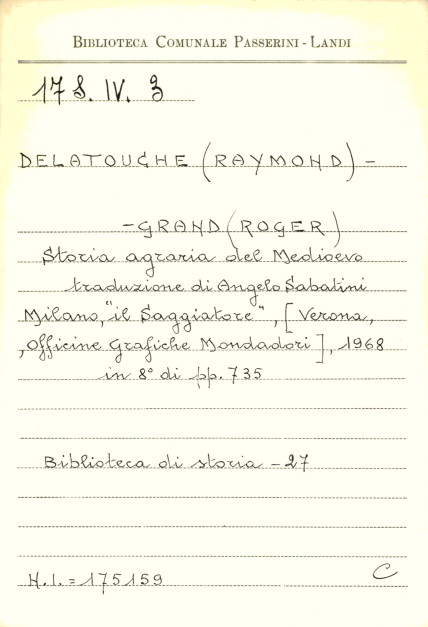 BIBLIOTECA COMUNALE PASSERINI - LANDI
17 S. IV. 3
DELATOUCHE (RAYMOND) -
- GRAND (ROGER)
Storia agraria del Medioevo
traduzione di Angelo Sabatini
Milano, "il Saggiatore", [Verona,
Officine Grafiche Mondadori], 1968
in 8° di pp. 735
Biblioteca di storia - 27
H.I. = 175159
C